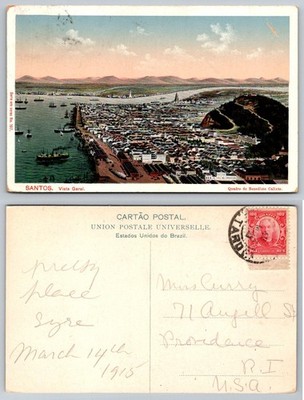 SANTOS. Vista Geral.
Quadro de Benedicto Calixto.
CARTÃO POSTAL.
UNION POSTALE UNIVERSELLE.
Estados Unidos do Brazil.
pretty
place
Syre
March 14th
1915
Miss Curry
71 Angell St
Providence
R. I
U.S.A.